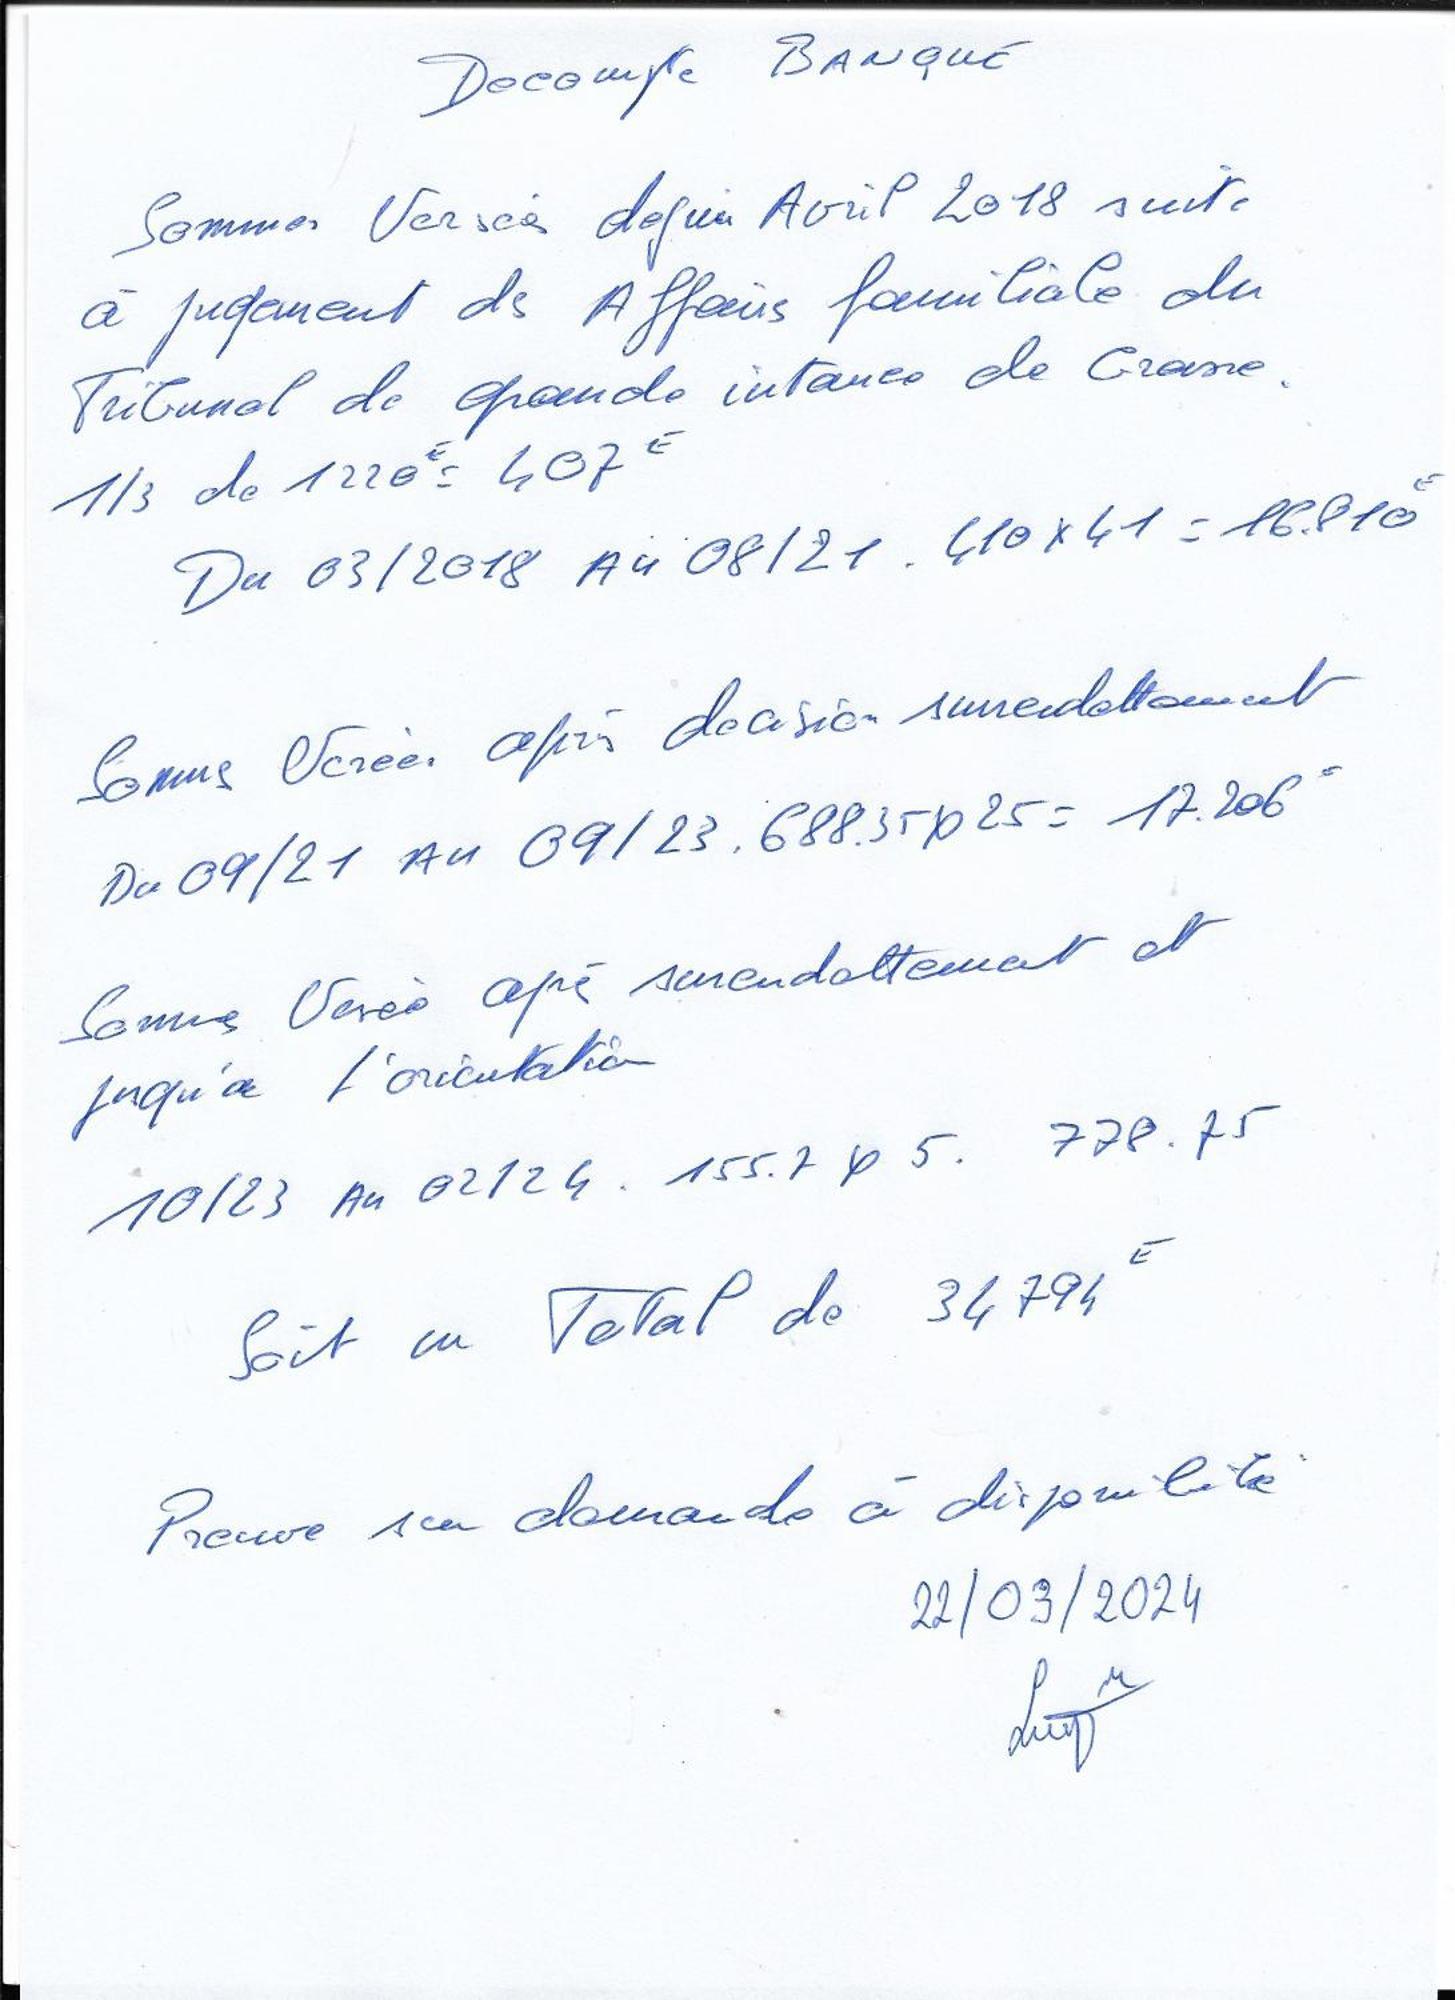 Decompte BANQUE
Sommes Versées depuis Avril 2018 suite
à jugement des Affaires familiale du
Tribunal de grande intance de Grasse.
1/3 de 1220€ = 407€
Du 03/2018 Au 08/21. 410 x 41 = 16.810€
Sommes Versées après decision surrendettement
Du 09/21 Au 09/23. 688.35 x 25 = 17.206€
Sommes Versée après surendettement et
jusqu'a l'orientation
10/23 Au 02/24. 155.7 x 5. 778.75
Soit un Total de 34794€
Preuve sur demande à disponibilité
22/03/2024